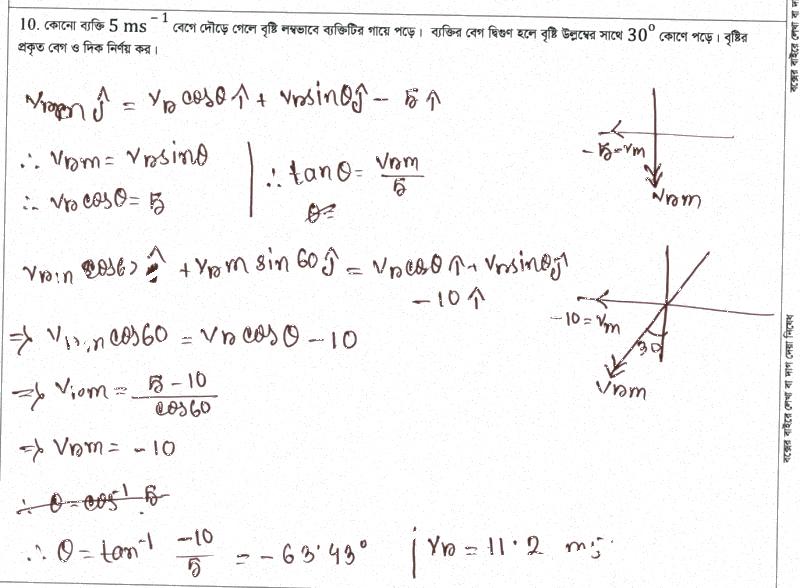 10. কোনো ব্যক্তি 5 ms⁻¹ বেগে দৌড়ে গেলে বৃষ্টি লম্বভাবে ব্যক্তিটির গায়ে পড়ে। ব্যক্তির বেগ দ্বিগুণ হলে বৃষ্টি উল্লম্বের সাথে 30° কোণে পড়ে। বৃষ্টির
প্রকৃত বেগ ও দিক নির্ণয় কর।
ĵ = v_R cosθ î + v_R sinθ ĵ − 5 î
∴ v_Rm = v_R sinθ
∴ v_R cosθ = 5
∴ tanθ = v_Rm / 5
−5 = v_m
v_Rm
cos60 î + v_Rm sin60 ĵ = v_R cosθ î + v_R sinθ ĵ
− 10 î
−10 = v_m
30
v_Rm
⇒ cos60 = v_R cosθ − 10
⇒ = (5 − 10) / cos60
⇒ v_Rm = −10
∴ θ = tan⁻¹ (−10 / 5) = −63.43° | v_R = 11.2
বক্সের বাইরে লেখা বা দাগ দেয়া নিষেধ
বক্সের বাইরে লেখা বা দা